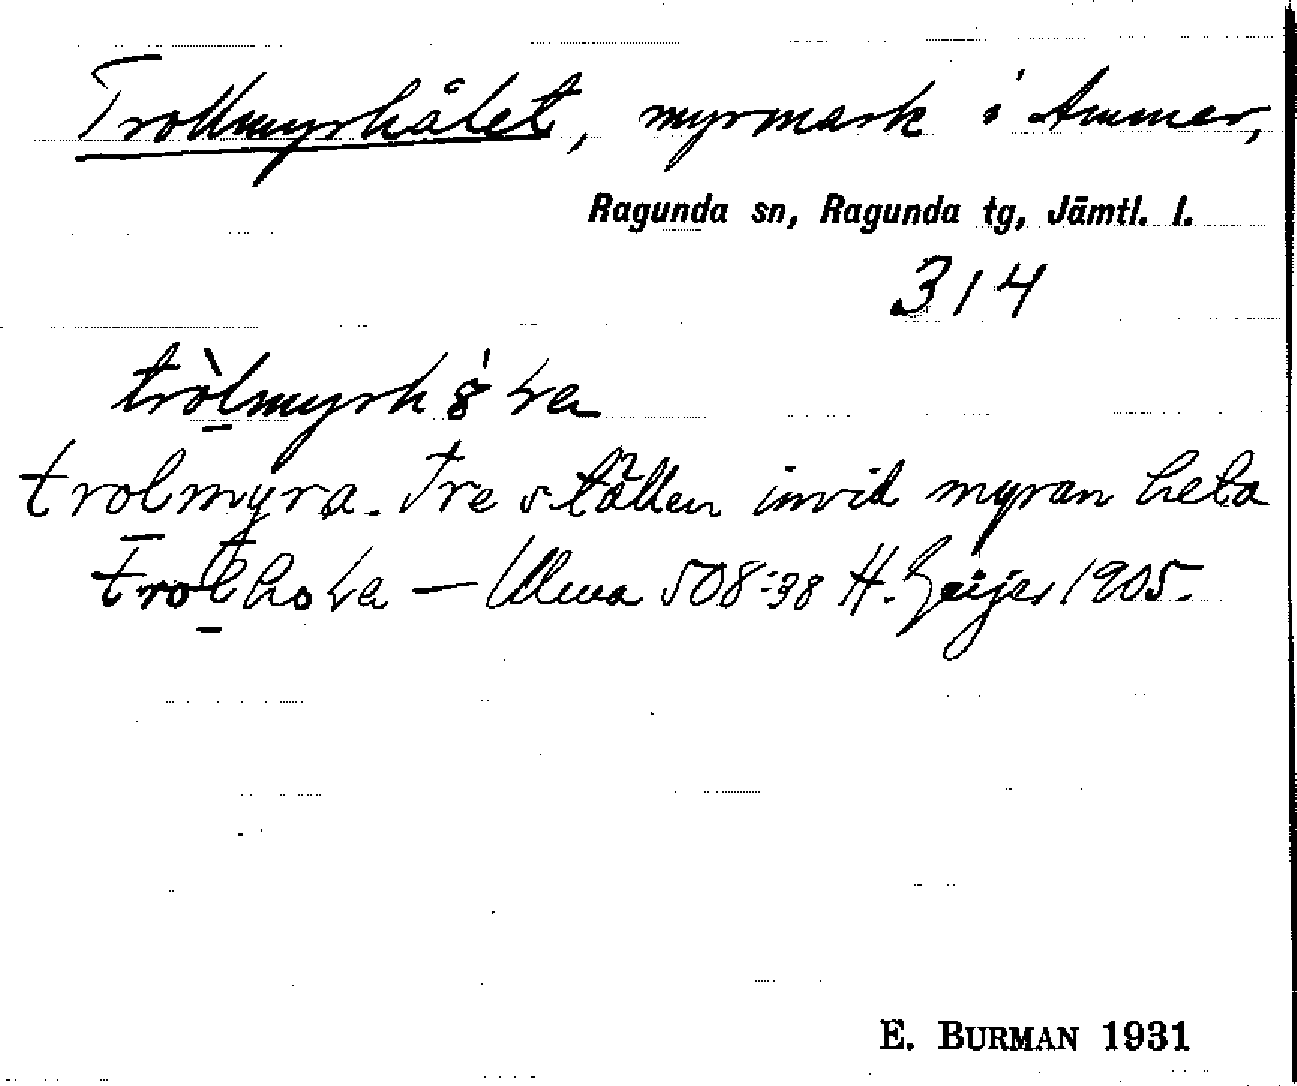 Trollmyrhålet, myrmark i Ammer,
Ragunda sn, Ragunda tg, Jämtl. l.
314
trolmyra. Tre ställen invid myran heta
— Ulma 508:38 H. Geijer 1905.
E. BURMAN 1931